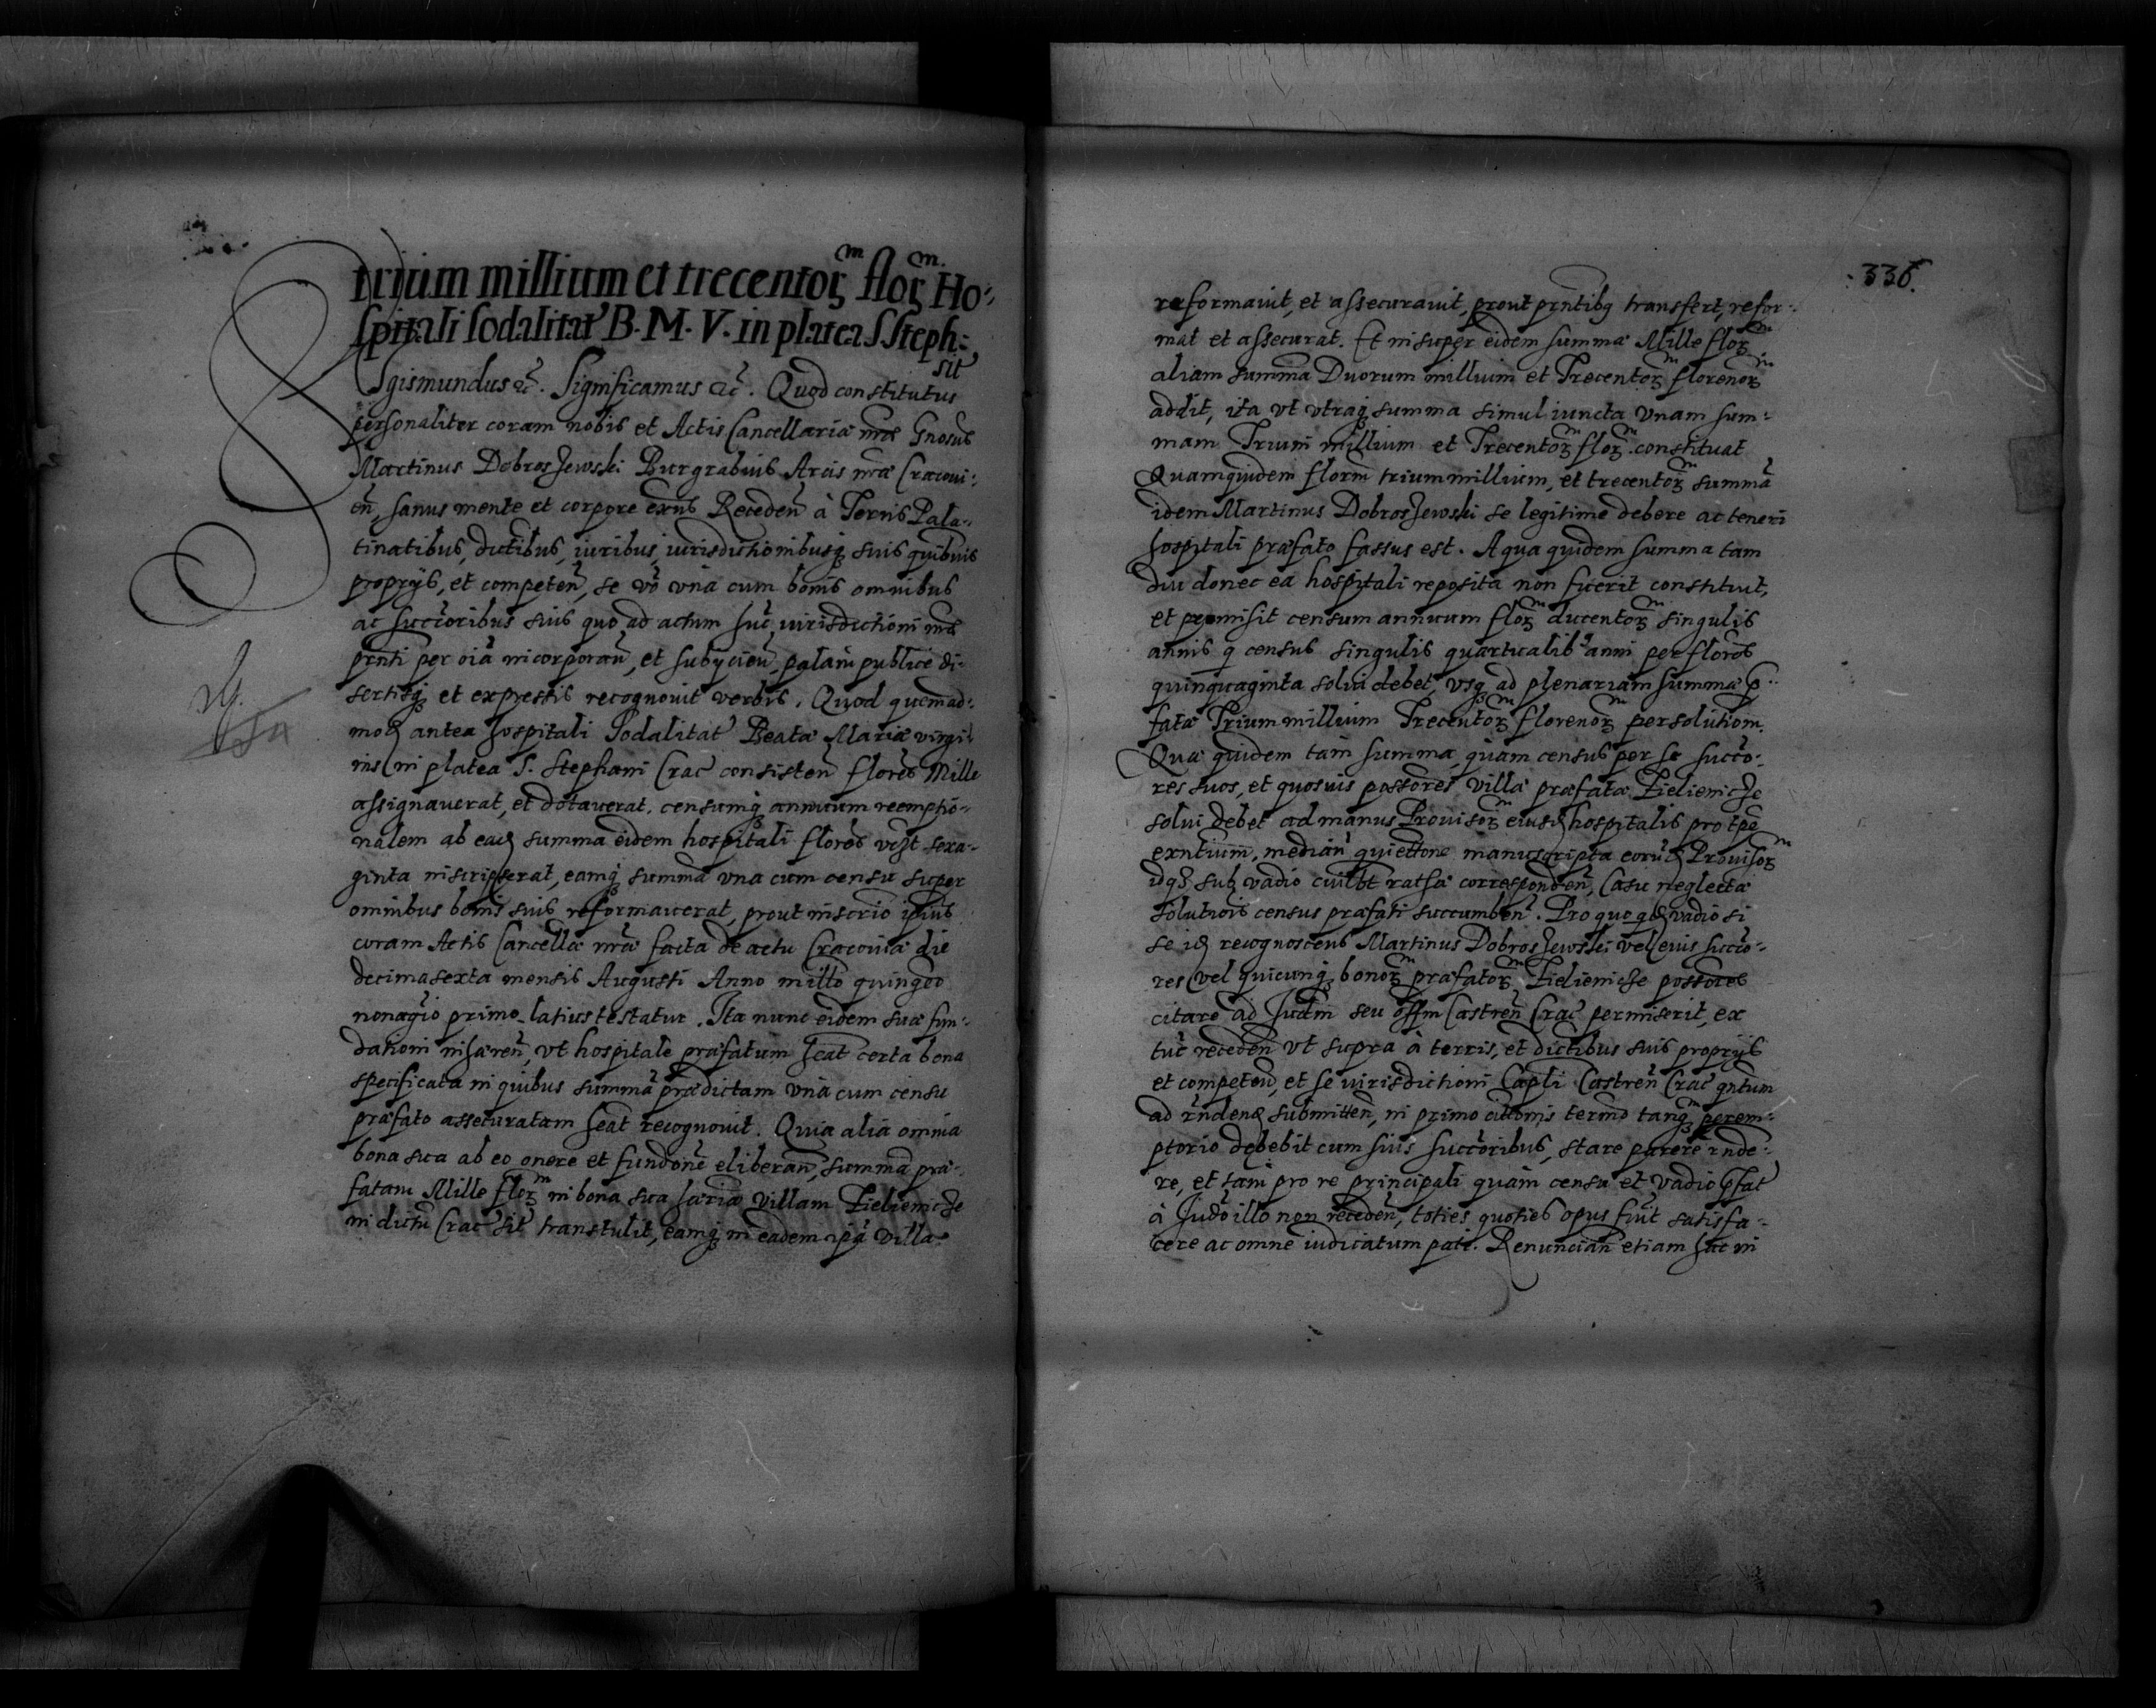 trium millium et trecentor̃m flor̃m. Ho-
spitali sodalitat̃ B. M. V. in platea S. Steph:
sit̃
Sgismundus &c̃. Significamus &c̃. Quod constitutus
personaliter coram nobis et Actis Cancellariæ nr̃æ Gnosus
Martinus Dobroszewski Burgrabius Arcis nr̃æ Cracoui-
eñ, sanus mente et corpore exñs Recedeñ à Terris Pala-
tinatibus, dictibus, iuribus, iurisdictionibusq̃ suis quibuis
proprijs, et competeñ, se võ vna cum bonis omnibus
ac succ̃oribus suis quo ad actum huc̃ iurisdictioni nr̃æ
pr̃nti per oĩa incorporañ, et subijcieñ, palam publice di-
sertisq̃ et expressis recognouit verbis. Quod quemad-
mod̃ antea hospitali Sodalitat̃ Beatæ Mariæ virgi-
nis in platea S. Stephani Crac̃ consisteñ florẽs Mille
assignauerat, et dotauerat, censumq̃ annuum reemptio-
nalem ab ead̃ summa eidem hospitali florẽs vczt sexa-
ginta inscripserat, eamq̃ summã vna cum censu super
omnibus bonis suis reformauerat, prout inscrio ipĩus
coram Actis Cancellæ nr̃æ facta de actu Cracouiæ die
decima sexta mensis Augusti Anno millõ quingẽo
nonagĩo primo latius testatur. Ita nunc eidem suæ fun-
dationi inhæreñ, vt hospitale præfatum heat certa bona
specificata in quibus summã prædictam vna cum censu
præfato assecuratam heat recognouit. Quia alia omnia
bona sua ab eo onere et fundonẽ eliberañ, summã præ-
fatam Mille flor̃m in bona sua hæria villam Zielienicze
in dictũ Crac̃ sit̃ transtulit, eamq̃ in eadem ipã villa
336.
reformauit, et assecurauit, prout pr̃ntibq transfert, refor-
mat et assecurat. Et insuper eidem summæ Mille flor̃m
aliam summã Duorum millium et Trecentor̃m florenor̃m
addit, ita vt vtraq̃ summa simul iuncta vnam sum-
mam Trium millium et Trecentor̃m flor̃m constituat
Quamquidem florm̃ trium millium, et trecentor̃m summã
idem Martinus Dobroszewski se legitime debere ac teneri
hospitali præfato fassus est. A qua quidem summa tam
diu donec ea hospitali reposita non fuerit constituit,
et promisit censum annuum flor̃m ducentor̃m singulis
annis q̃ census singulis quartualib9 anni per florẽs
quinquaginta solui debet, vsq̃ ad plenariam summæ p̃-
fatæ Trium millium Trecentor̃m florenor̃m persolutiom.
Quæ quidem tam summa quam census per se succ̃o-
res suos, et quosuis possorẽs villæ præfatæ Zielienicze
solui debet ad manus Prouisor̃m eiusd̃ hospitalis pro tpẽ
exñtium, mediañ quiettone manuscripta eorũd̃ Prouisor̃m
idq̃ sub vadio cuilbt rathæ correspondeñ, Casu neglectæ
solutiois census præfati succumbeñ. Pro quo qd̃ vadio si
se id̃ recognoscens Martinus Dobroszewski vel eius succ̃o-
res vel quicunq̃ bonor̃m præfator̃m Zielienicze possores
citare ad Judm̃ seu offm̃ Castreñ Crac̃ permiserit, ex
tuc̃ recedeñ vt supra à terris, et dictibus suis proprijs
et competeñ, et se iurisdictioni Capli Castreñ Crac̃ qntum
ad r̃ndend̃ submitteñ, in primo cittonis termõ tanq̃m perem-
ptorio debebit cum suis succ̃oribus, stare parere r̃nde-
re, et tam pro re principali quam censu et vadio p̃fat̃
à Judõ illo non recedeñ, toties quoties opus fuit satisfa-
cere ac omne iudicatum pati. Renunciañ etiam huc in